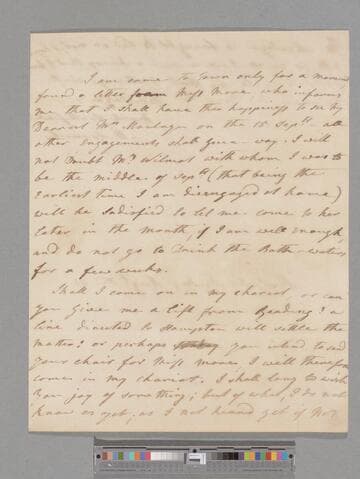 I am come to town only for a moment
found a letter from Miss More who informs
me that I shall have the happiness to see my
Dearest Mrs Montagu on the 15 Septr. all
other Engagements shall give way. I will
not Doubt Mrs Wilmot with whom I was to
be the middle of Septr (that being the
Earliest time I am disengaged at home)
will be Satisfied to let me come to her
later in the month, if I am well enough
and do not go to Drink the Bath-waters
for a few weeks.
Shall I come on in my chariot, or can
you give me a lift from Reading? a
line directed to Hampton will settle the
matter: or perhaps you intend to send
your chair for Miss More I will therefore
come in my chariot. I shall long to wish
you joy of something; but of what, I do not
know as yet; as I not heard yet of